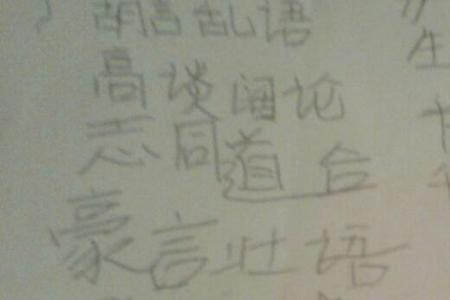 胡言乱语
高谈阔论
志同道合
豪言壮语